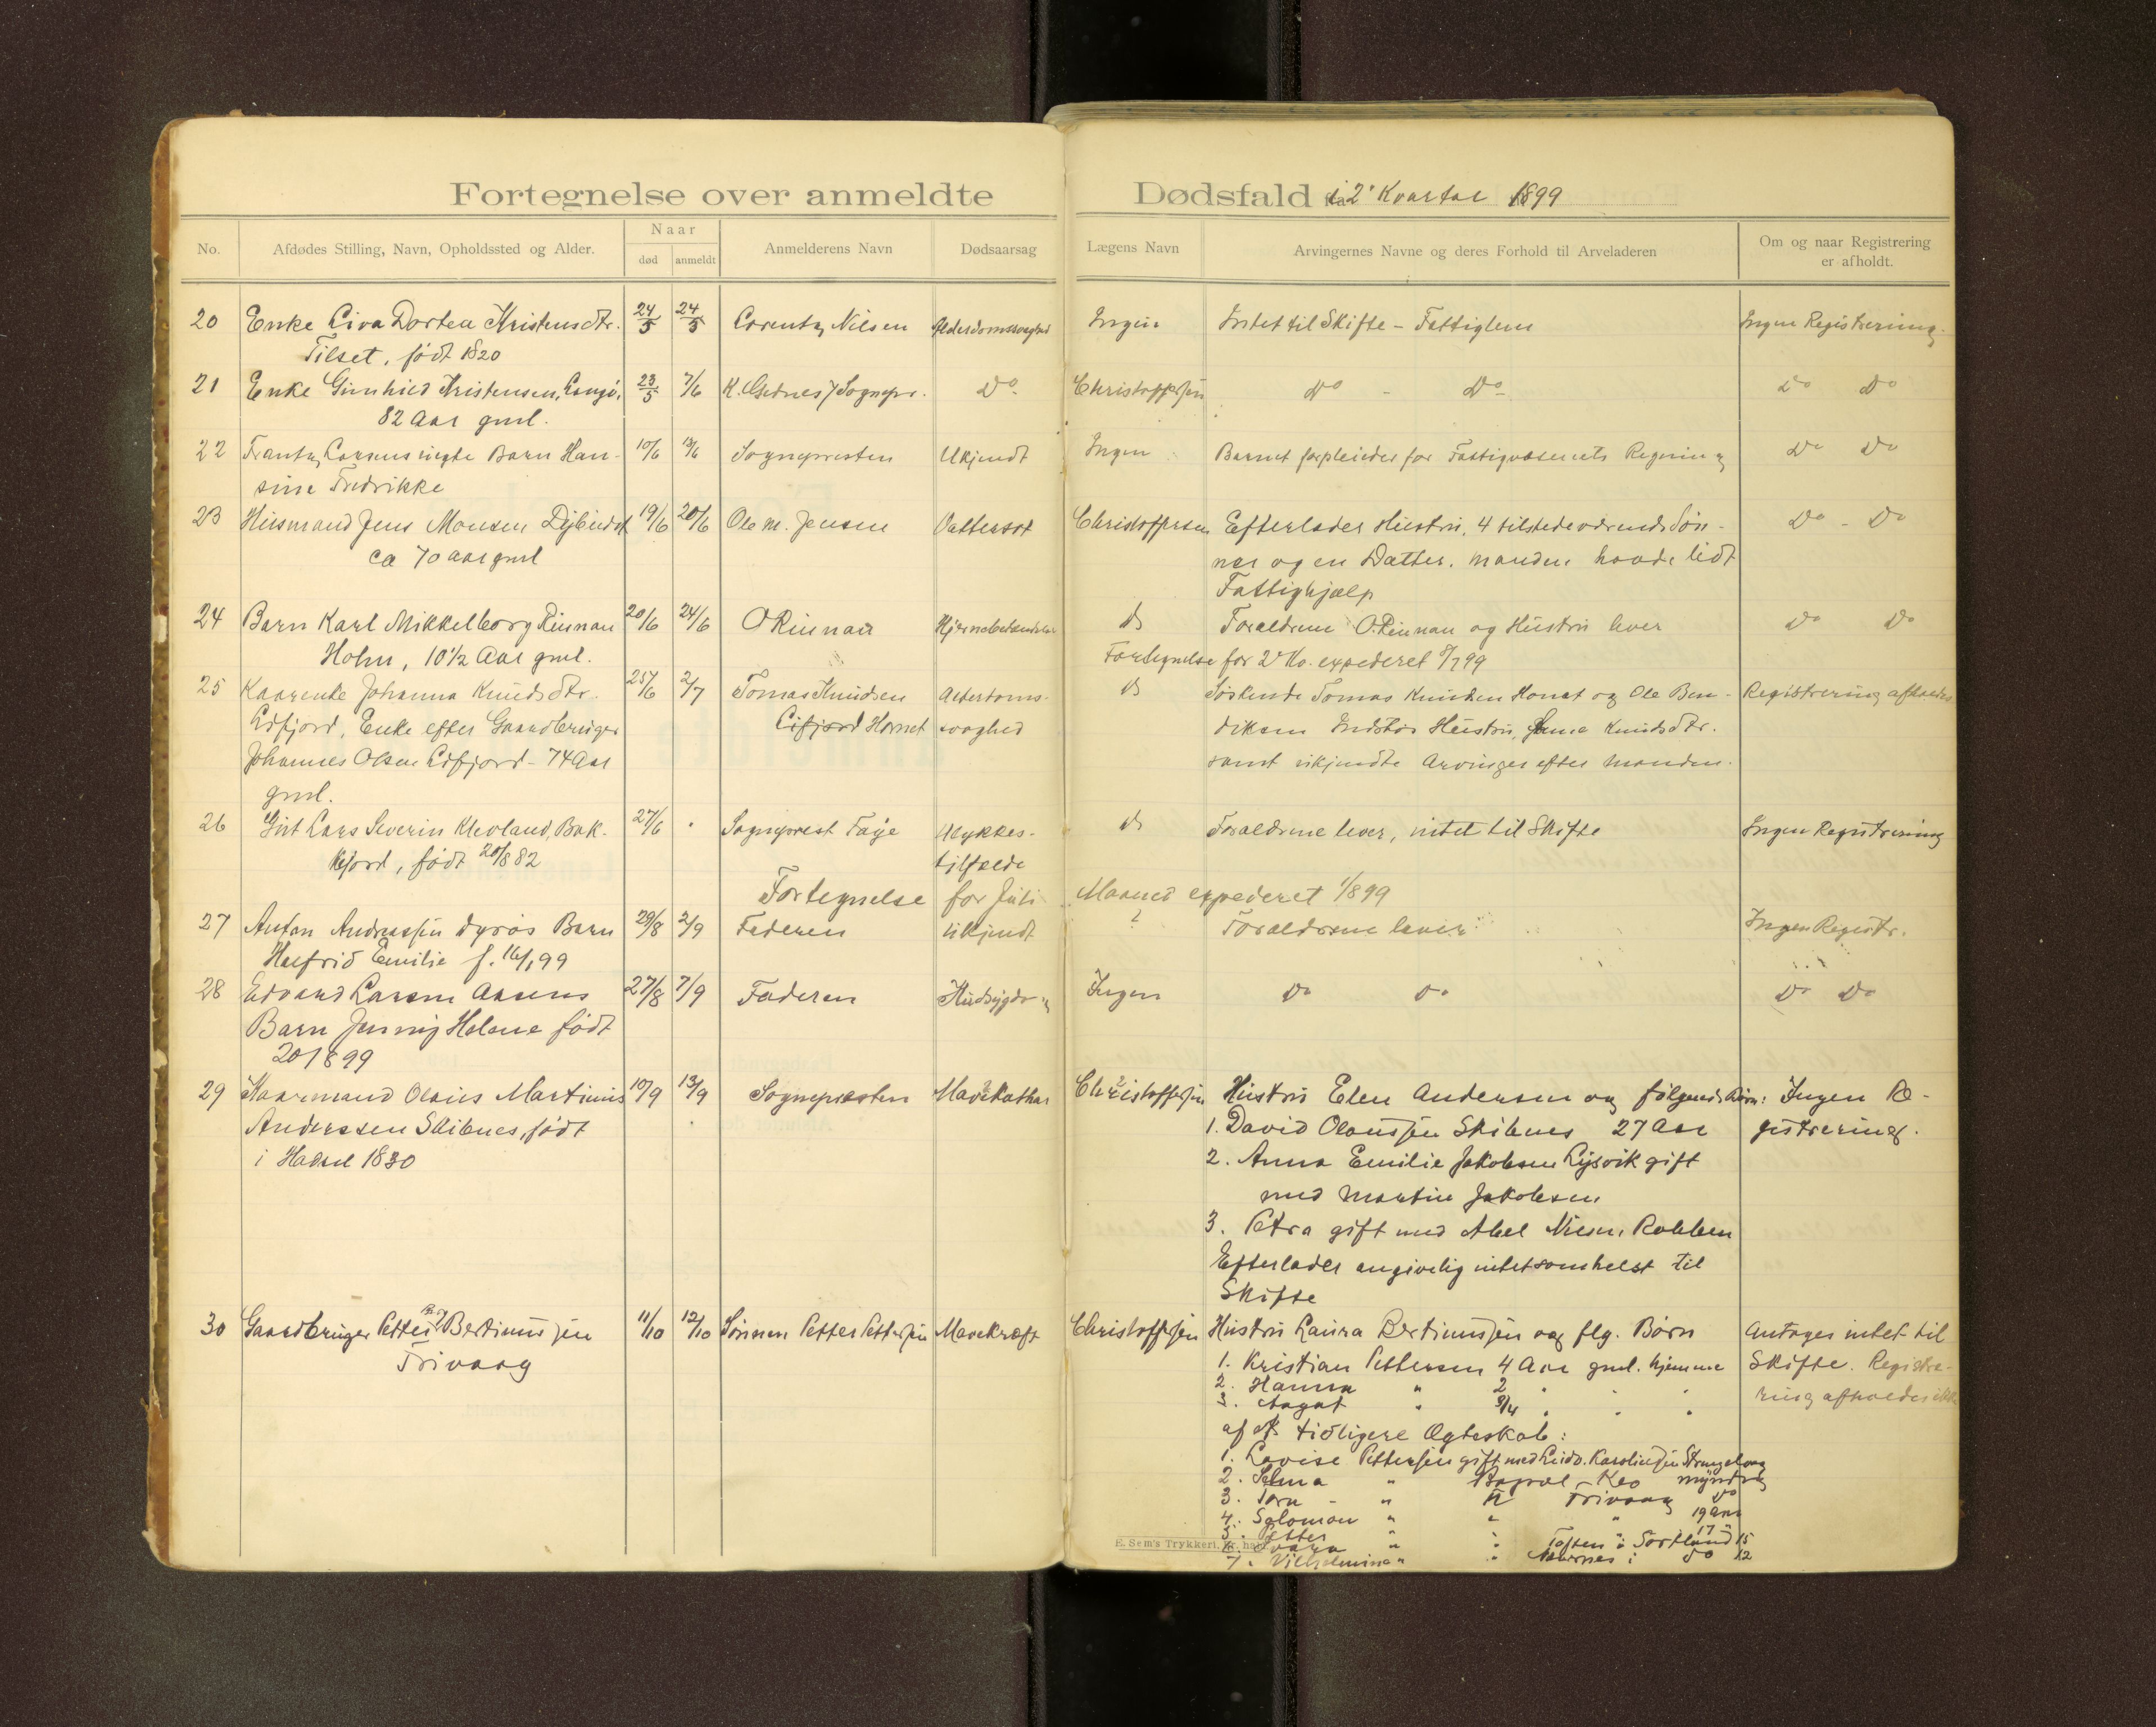 Fortegnelse over anmeldte Dødsfald i 2' Kvartal 1899
No. Afdødes Stilling, Navn, Opholdssted og Alder. Naar død anmeldt Anmelderens Navn Dødsaarsag Lægens Navn Arvingernes Navne og deres Forhold til Arveladeren Om og naar Registrering er afholdt.
20 Enke Liva Dortea Kristensdtr. 24/5 24/5 Lorentz Nilsen Alderdomssvaghed Ingen Intet til Skifte - Fattiglem Ingen Registrering.
Tilset, født 1820
21 Enke Gunhild Kristensen, Langø, 23/5 7/6 Sognepr. Do. Christoffersen Do - Do - Do Do
82 Aar gml.
22 Frantz Larsens uægte Barn Han- 10/6 13/6 Sognepresten Ukjendt Ingen Barnet forpleiedes for Fattigvæsenets Regning Do Do
sine Fredrikke
23 Husmand Jens Monsen 19/6 20/6 Ole M. Jensen Vattersot Christoffersen Efterlader Hustru, 4 tilstedeværende Søn- Do - Do
ca 70 aar gml ner og en Datter. Manden havde lidt
Fattighjælp
24 Barn Karl Mikkelborg Rinnan 20/6 24/6 O Rinnan Hjernebetændelse do Forældrene O. Rinnan og Hustru lever Do Do
Holm, 10 1/2 Aar gml. Fortegnelse for 2' Kv. expederet 8/7 99
25 Kaarenke Johanna Knudsdtr. 25/6 2/7 Tomas Knudsen Alderdoms- do Søskende Tomas Knudsen Hornet og Ole Ben- Registrering afholdes
Eidfjord, Enke efter Gaardbruger Eidfjord Hornet svaghed diksen Hustru, Knudsdtr.
Johannes Olsen Eidfjord - 74 Aar samt ukjendte Arvinger efter Manden.
gml.
26 Gut Lars Severin Klevland, Bak- 27/6 Sogneprest Faye Ulykkes- do Forældrene lever, intet til Skifte Ingen Registrering
kefjord, født 20/8 82 tilfælde
Fortegnelse for Juli Maaned expederet 1/8 99
27 Anton Andreassen Dyrøs Barn 29/8 2/9 Faderen ukjendt ? Forældrene lever Ingen Registr.
Halfrid Emilie f. 16/1 99
28 Edvard Larsen Aasens 27/8 7/9 Faderen Hudsygdom Ingen Do Do Do Do
Barn Jenny Helene født
20/8 99
29 Kaarmand Olaus Martinus 10/9 13/9 Sognepresten Mavekathar Christoffersen Hustru Elen Andersen og følgende Børn: Ingen Re-
Anderssen Skibnes, født 1. David Olaussen Skibnes 27 Aar gistrering.
i Hadsel 1830 2. Anna Emilie Jakobsen Lysvik gift
med Martin Jakobsen
3. Petra gift med Abel Nilsen, Robben
Efterlader angivelig intetsomhelst til
Skifte
30 Gaardbruger Petter Bertinussen 11/10 12/10 Sønnen Petter Pettersen Mavekræft Christoffersen Hustru Laura Bertinussen og flg. Børn Antages intet til
Trivaag 1. Kristian Pettersen 4 Aar gml. hjemme Skifte. Registre-
2. Hanna " 2 " " " ring afholdes ikke
3. Aagot " 3/4 " " "
af tidligere Ægteskab:
1. Lovise Pettersen gift med
2. Selma " myndig
3. " Trivaag Do
4. Salomon " " " 19 Aar
5. Petter " " " 17 "
E. Sem's Trykkeri, Fr. hald. 6. " " i Sortland 15
7. Vilhelmina " " i Do 12